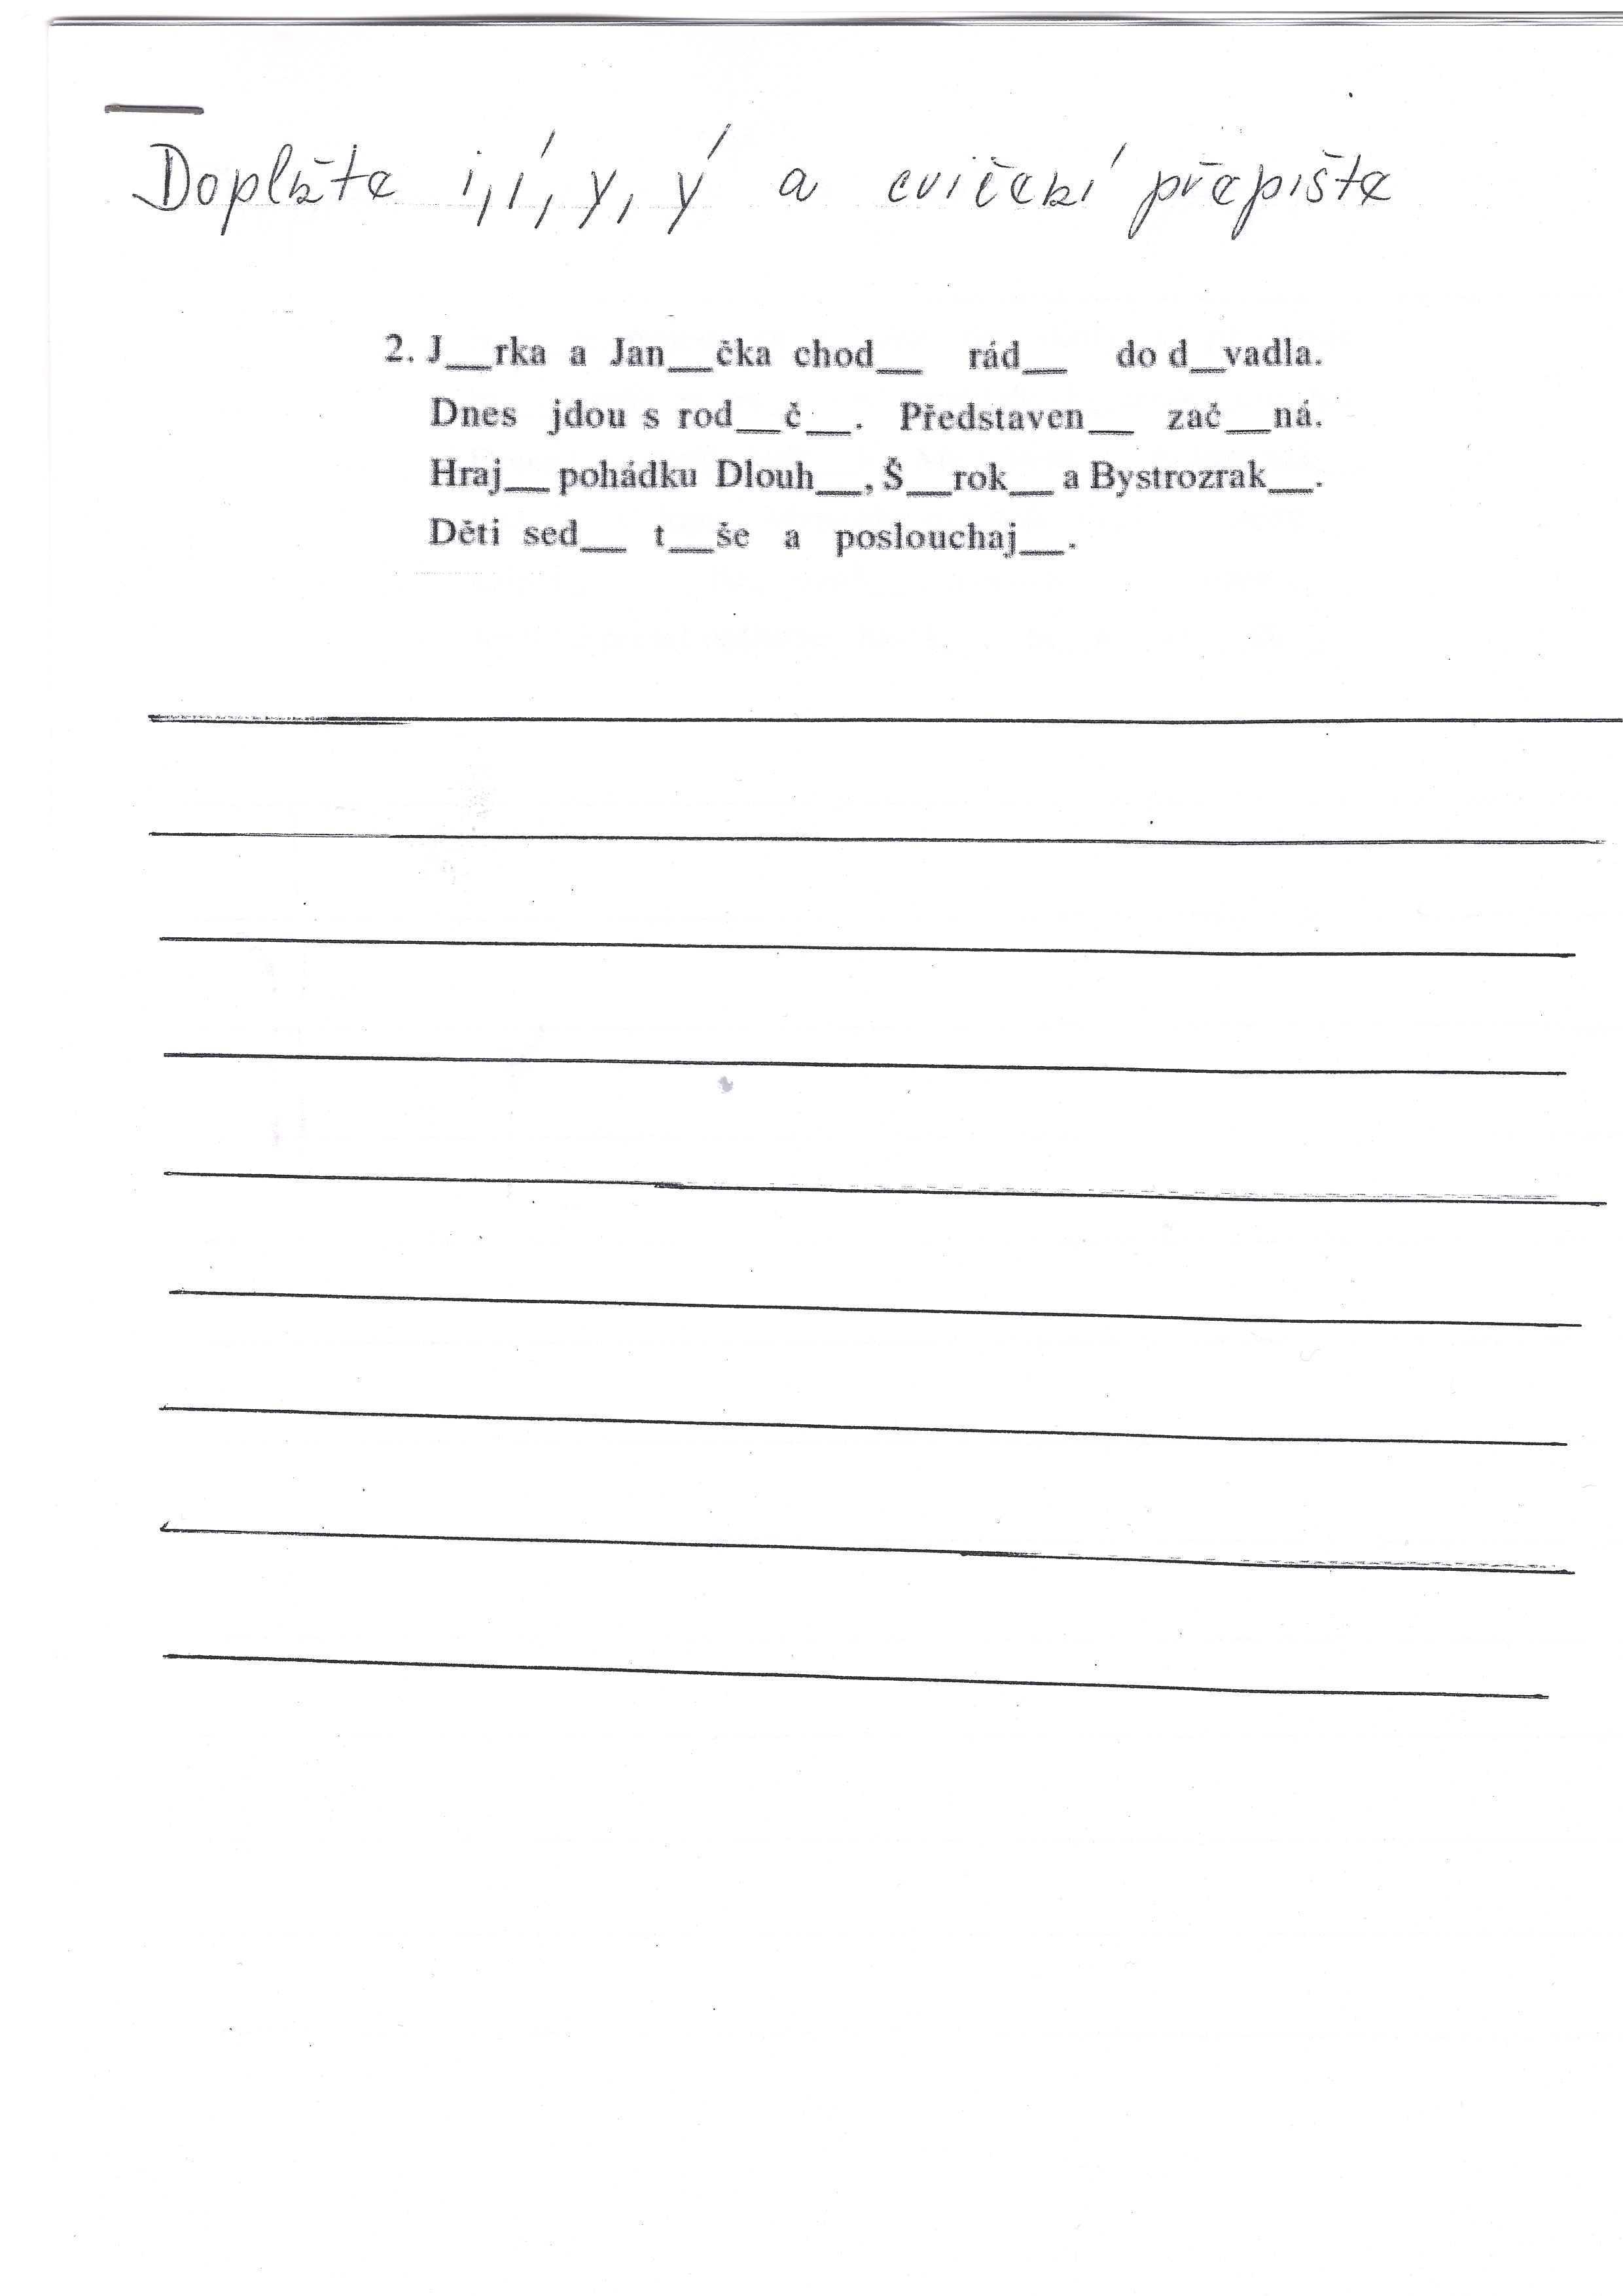 Doplňte i, í, y, ý a cvičení přepište
2. J__rka a Jan__čka chod__ rád__ do d__vadla.
Dnes jdou s rod__č__. Představen__ zač__ná.
Hraj__ pohádku Dlouh__, Š__rok__ a Bystrozrak__.
Děti sed__ t__še a poslouchaj__.